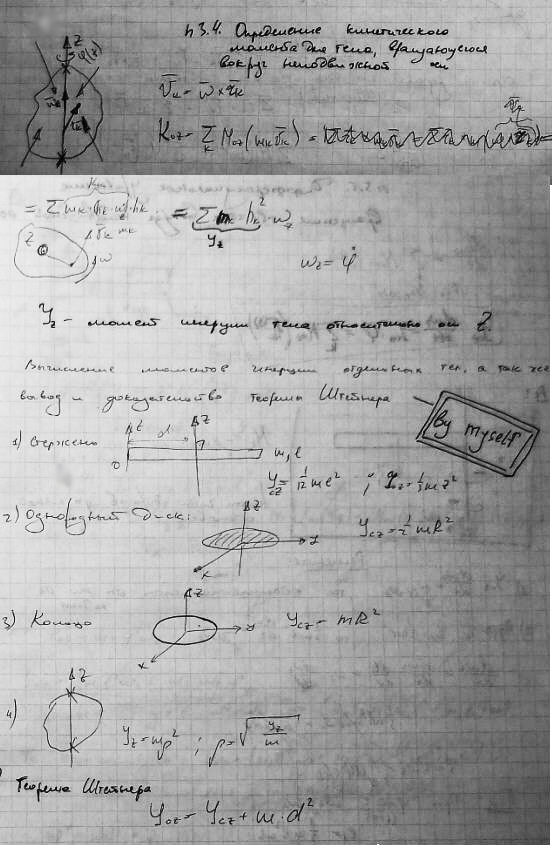 п 3.4. Определение кинетического
момента для тела, вращающегося
вокруг неподвижной оси
Z
φ(z)
V̄k = w̄ × r̄k
Koz = Σk Moz(mk v̄k) =
= Σ mk · hk · wz · hk = Σ mk · hk² · wz
Jz
wz = φ̇
Jz – момент инерции тела относительно оси Z.
Вычисление моментов инерции отдельных тел, а так же
вывод и доказательство теоремы Штейнера
By myself
1) Стержень
z' d Z
0 m, l
Jcz = 1/12 ml² ; Joz = 1/3 ml²
2) Однородный диск:
Z
y
x
Jcz = 1/2 mR²
3) Кольцо
Z
y
x
Jcz = mR²
4)
Z
Jz = mρ² ; ρ = √(Jz/m)
Теорема Штейнера
Joz = Jcz + m · d²